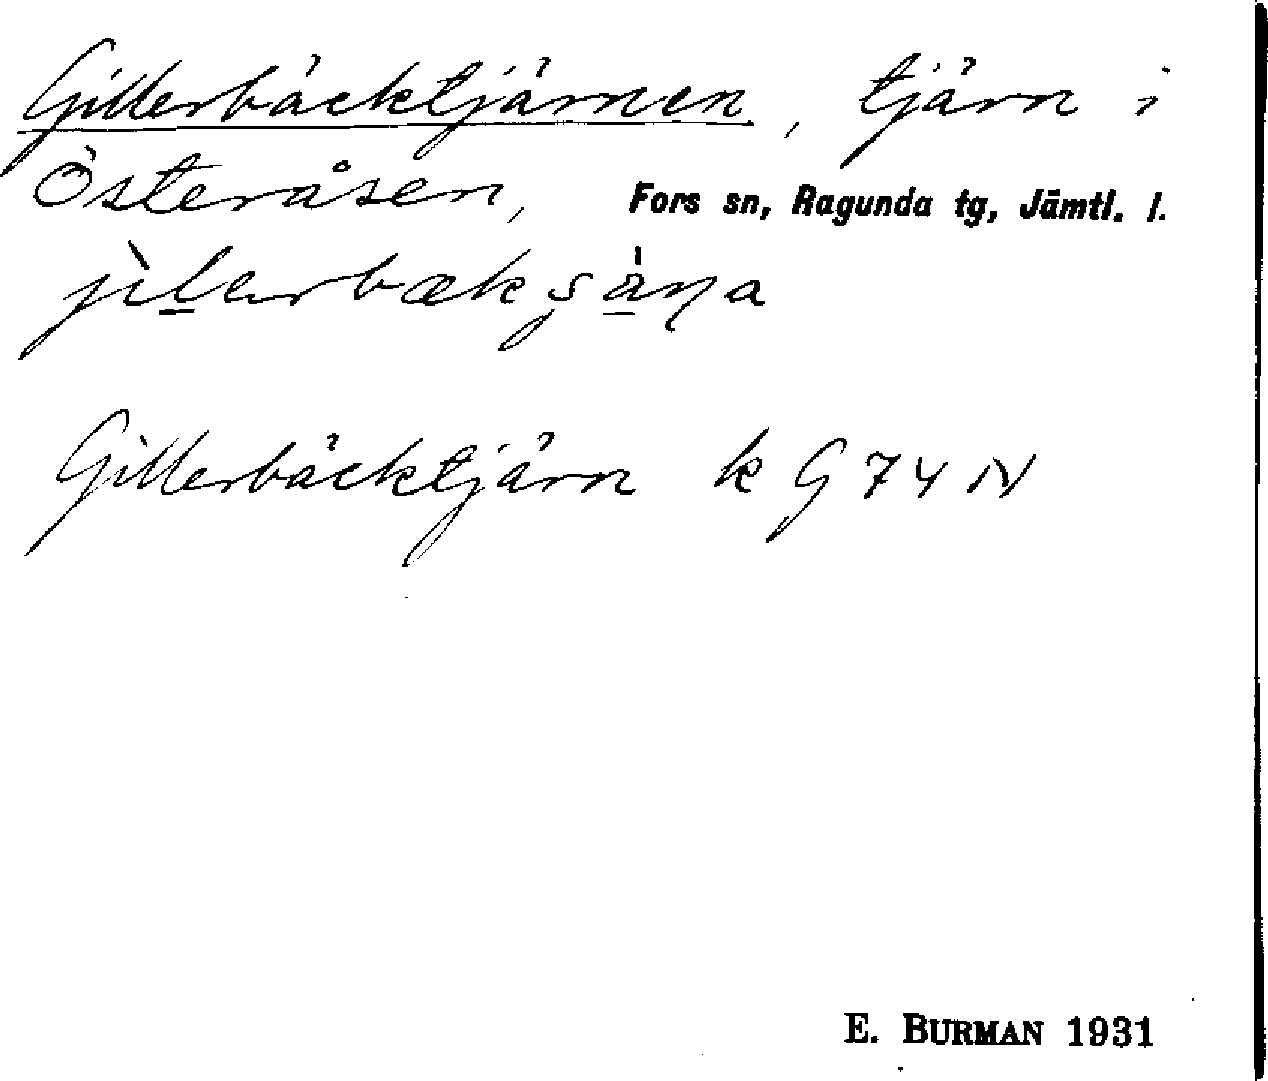 Gillerbäcktjärnen, tjärn i
Österåsen, Fors sn, Ragunda tg, Jämtl. l.
Gillerbäcktjärn k G 74 N
E. BURMAN 1931